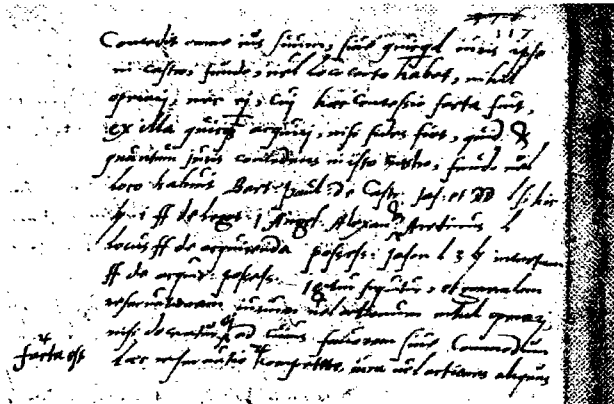 117
Concedit omne ius suum, siue quicqd iuris ipse
in castro, fundo, uel loco certo habet, nihil
operarj, nec ej, cuj haec concessio facta fuit,
ex illa quicq acquirj, nisi fides fiat, quid &
quantum juris concedens in isto castro, fundo uel
loco habuit Bart. Paul. de Castr. Jas. et DD l. si sic
§ 1 ff de legat. 1 Angel. Alexand Aretinus l
locus ff de acquirenda possess. Jason l 3 § incertam
ff de acquir. possess. sequitur, et generalem
reseruationem iurium uel actionum nihil operarj
nisi doceatur ad cuius fauorem siue commodum
facta est
haec reseruatio competere, iura uel actiones aliquas